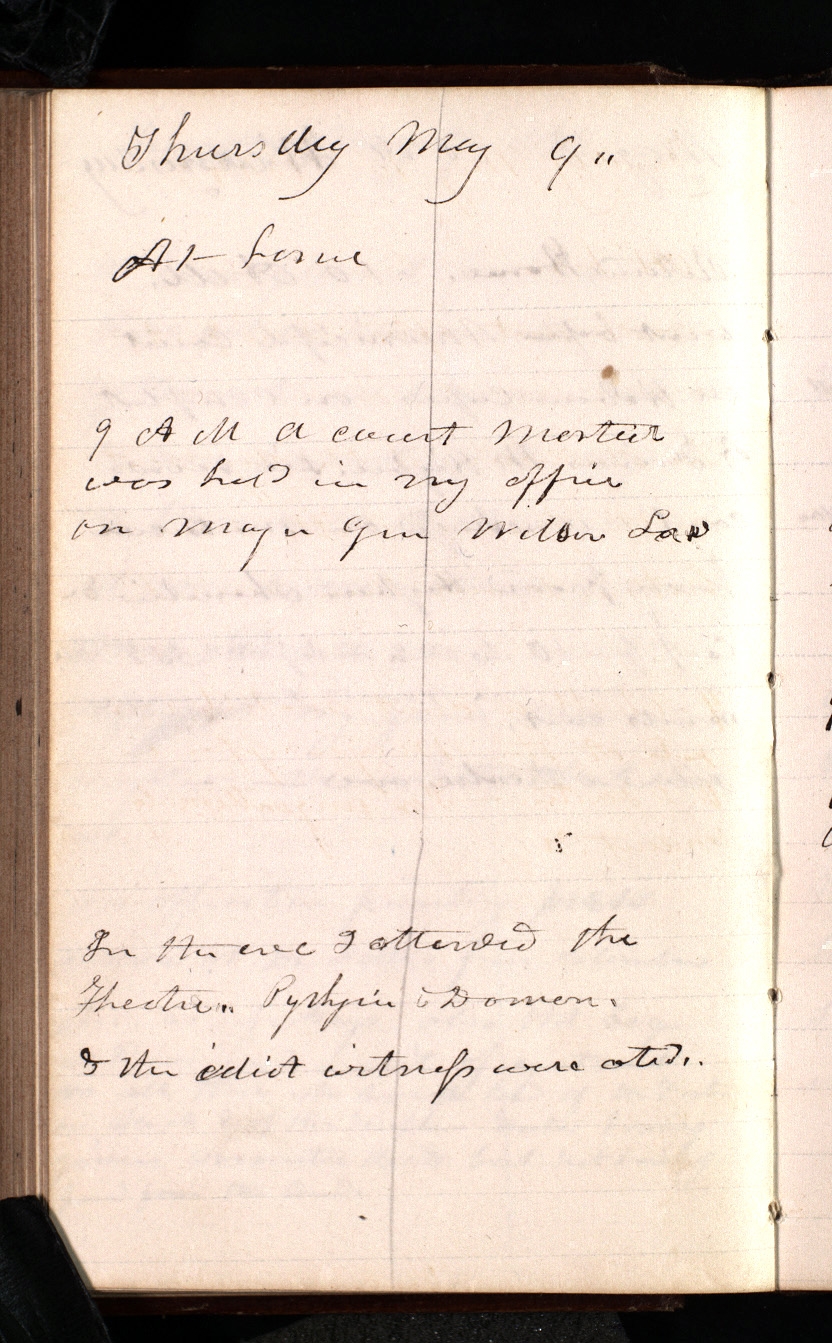 Thursday May 9"
At home
9 A M a court Marteil
was held in my office
on Major Gen Wilson Law
In the eve I attended the
Theatre" & Damon.
& the idiot witness were acted".